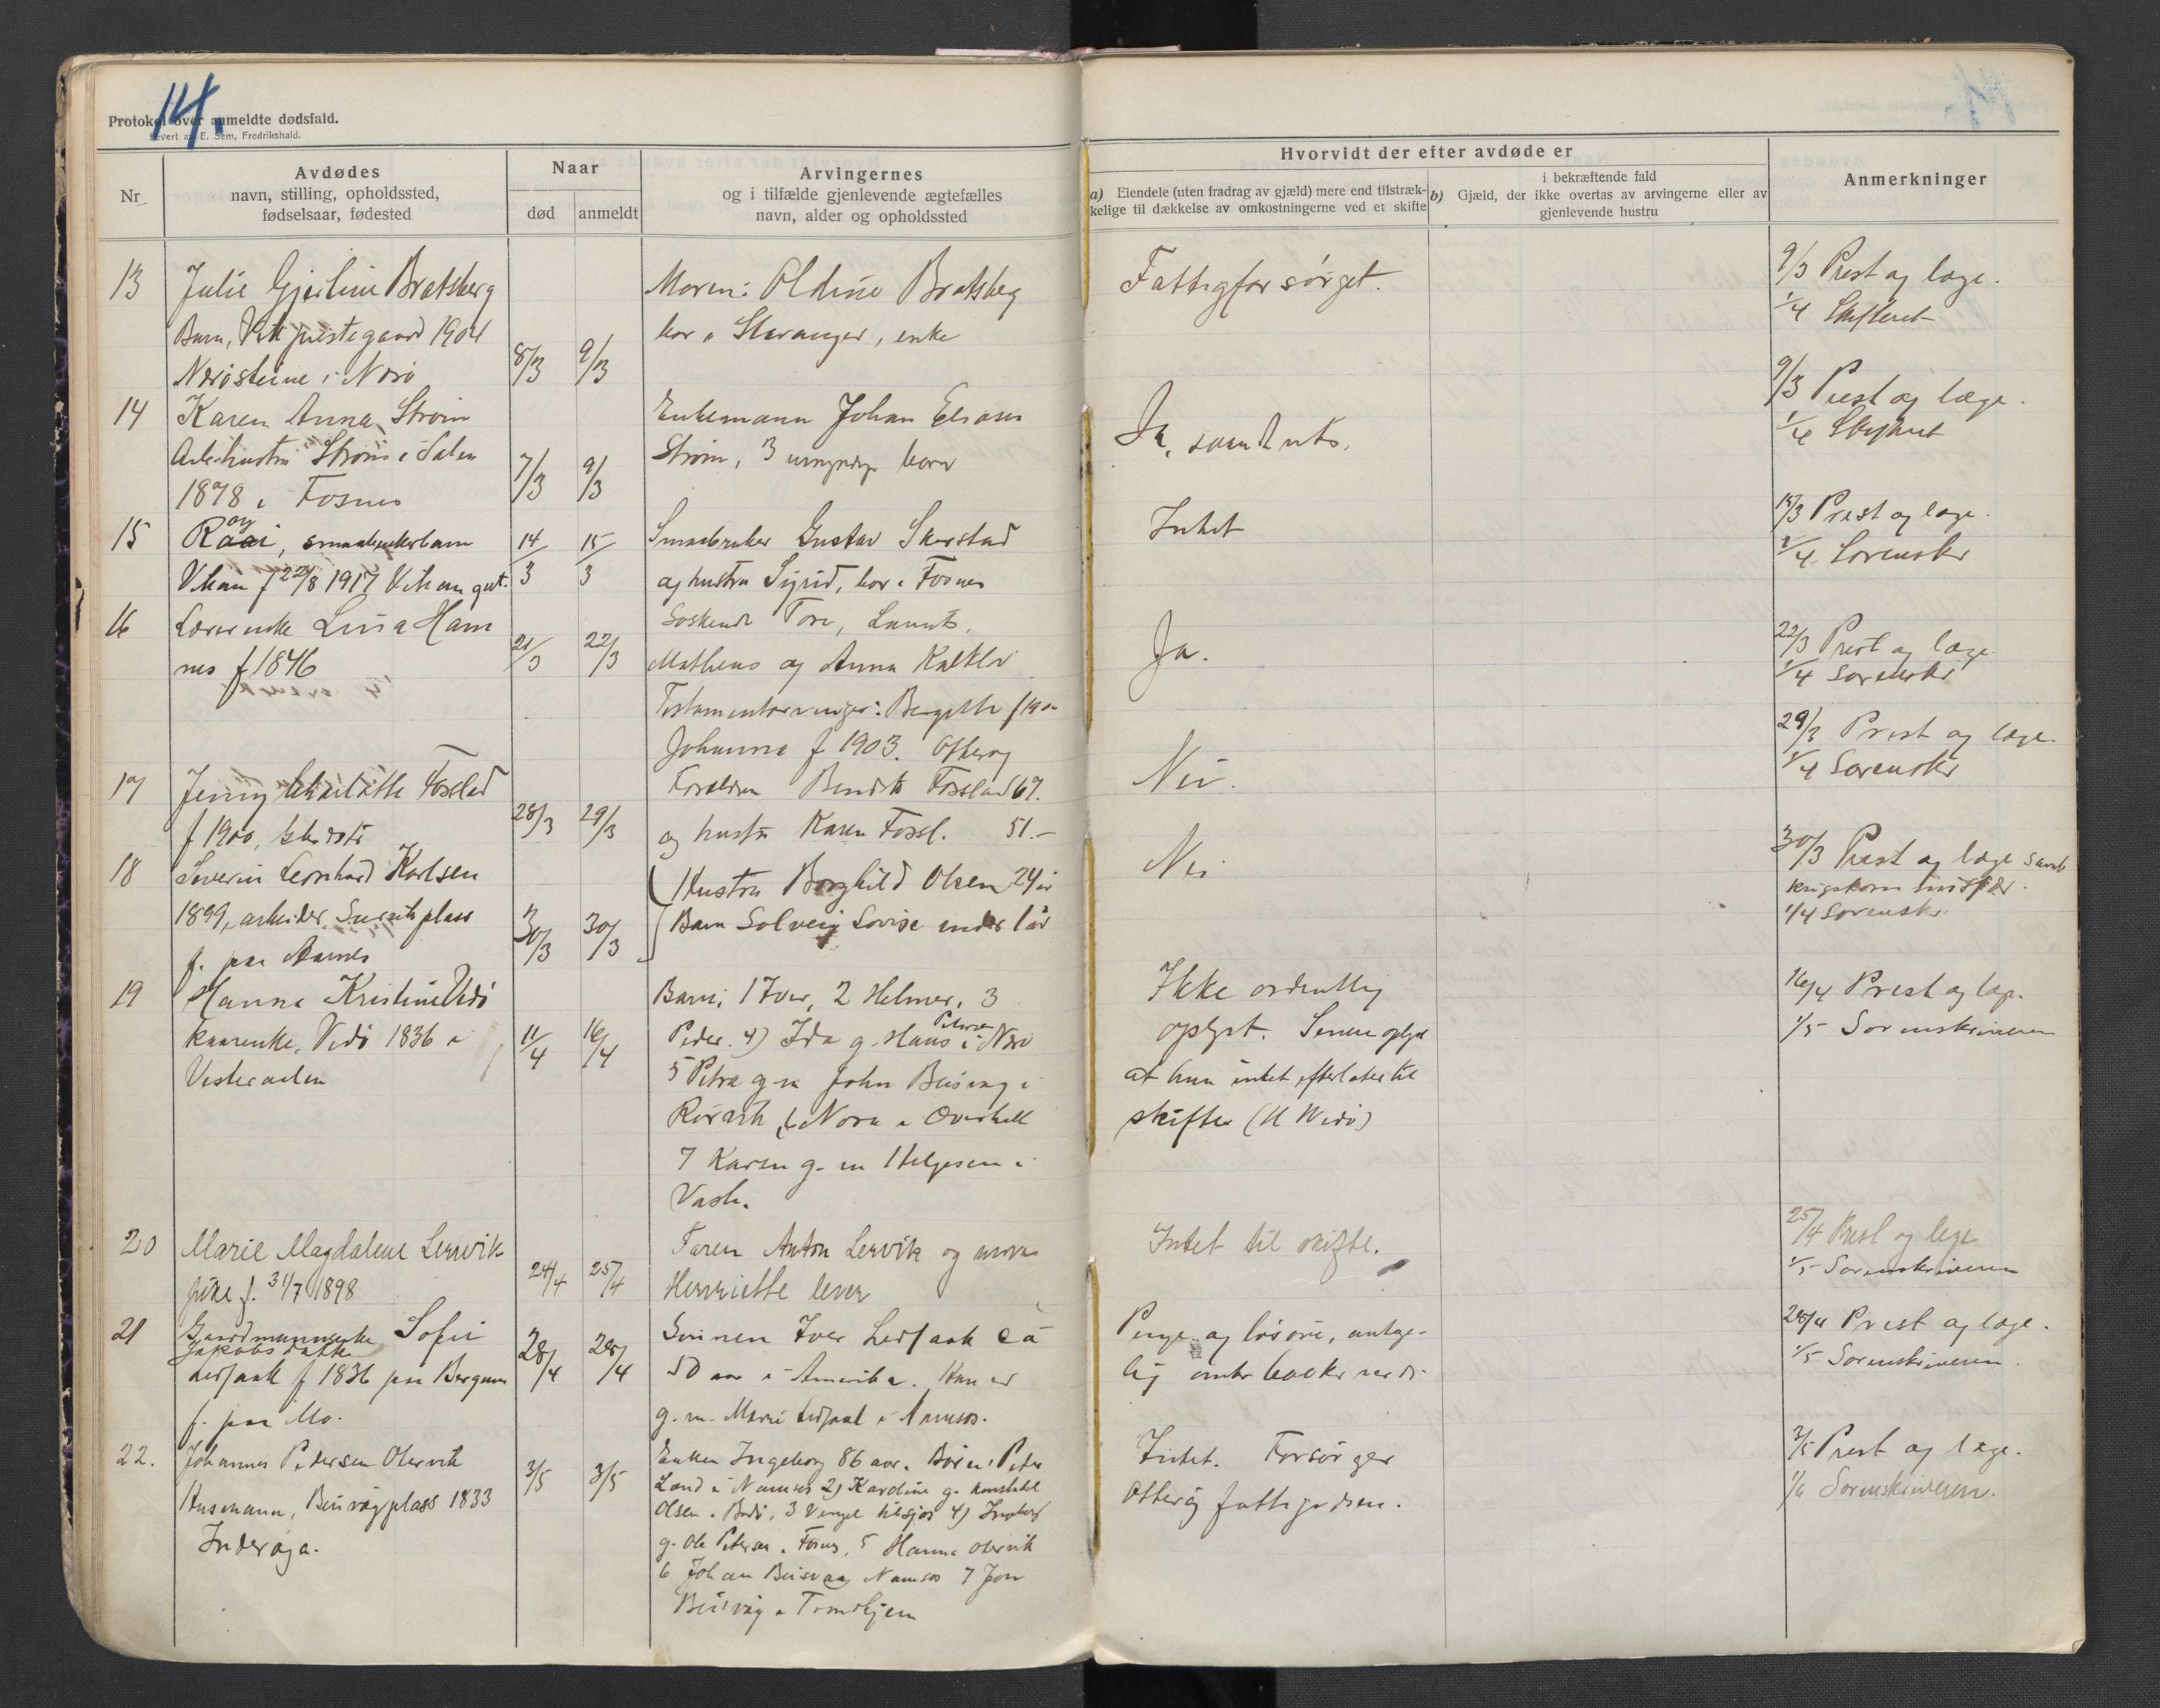 14.
Protokol over anmeldte dødsfald.
Levert av E. Sem, Fredrikshald.
Nr
Avdødes
navn, stilling, opholdssted,
fødselsaar, fødested
Naar
død
anmeldt
Arvingernes
og i tilfælde gjenlevende ægtefælles
navn, alder og opholdssted
Hvorvidt der efter avdøde er
a) Eiendele (uten fradrag av gjæld) mere end tilstræk-
kelige til dækkelse av omkostningerne ved et skifte
i bekræftende fald
b) Gjæld, der ikke overtas av arvingerne eller av
gjenlevende hustru
Anmerkninger
13
Julie Gjertine Bratsberg
Barn, Vik prestegaard 1904
Nærøsteine i Nærø
8/3
9/3
Moren: Oldine Bratsberg
bor i Stavanger, enke
Fattigforsørget.
9/3 Prest og læge.
1/4 Skifteret
14
Karen Anna Strøm
Arb.hustru Strøm i Salen
1878 i Fosnes
7/3
9/3
Enkemann Johan
Strøm, 3 umyndige barn
Ja,
9/3 Prest og læge.
1/4 Skifteret
15
Roy, smaabrukerbarn
f 22/8 1917
14/3
15/3
Smaabruker Gustav Skorstad
og hustru Sigrid, bor i Fosnes
Intet
15/3 Prest og læge.
1/4 Sorenskr
16
Lærerenke Lina Ham
nes f 1846
21/3
22/3
Søskende Tore, Laurits,
Matheus og Anna Kalklø
Testamentarvinger: Bergitte f 190
Johanna f 1903. Otterøy
Ja.
22/3 Prest og læge
1/4 Sorenskr
17
Jenny Charlotte Fossland
f 1900,
28/3
29/3
Forældre Bendik Fossland 67.
og hustru Karen Fossl. 51.-
Nei.
29/3 Prest og læge.
1/4 Sorenskr
18
Severin Leonhard Karlsen
1899, arbeider, plass
f. paa Aarnes
30/3
30/3
Hustru Borghild Olsen 24 år
Barn Solveig Lovise under 1 år
Nei
30/3 Prest og læge samt
1/4 Sorenskr.
19
Hanna Kristine Vedø
kaarenke, Vedø 1836 i
Vesteraalen
11/4
16/4
Barn: 1 Iver, 2 Helmer, 3
Peder. 4) Ida g. Hans Petersen i Nærø
5 Petra g m John Beisvag i
Rørvik, 6 Nora i Overhall
7 Karen g. m Helgesen i
Vasb.
Ikke ordentlig
oplyst. Senere oplyst
at hun intet efterlater til
skifte (H Wedø)
16/4 Prest og læge.
1/5 Sorenskriveren
20
Marie Magdalene Lervik
pike f. 31/7 1898
24/4
25/4
Faren Anton Lervik og moren
Henriette lever
Intet til skifte.
25/4 Prest og lege
1/5 Sorenskriveren
21
Gaardmannsenke Sofie
Jakobsdatter
Ledsaak f 1836 paa Bergum
f. paa Mo.
28/4
28/4
Sønnen Iver Ledsaak ca
50 aar i Amerika. Han er
g. m. Marie Ledsaak i Namsos.
Penge og løsøre, antage-
lig
28/4 Prest og læge.
1/5 Sorenskriveren.
22.
Johannes Pedersen Olervik
Husmann, Beisvagplass 1833
Inderøya.
3/5
3/5
Enken Ingeborg 86 aar. Børn: Peder
Land i Namsos 2) Karoline g. konstabel
Olsen i Bodø, 3 tilsjøs 4) Ingeborg
g. Ole Petersen i Fosnes, 5 Hanna Olervik
6 Johan Beisvag Namsos 7 Jon
Beisvag i Trondhjem
Intet. Forsørges
Otterøy fattigvæsen.
3/5 Prest og læge.
1/6 Sorenskriveren.